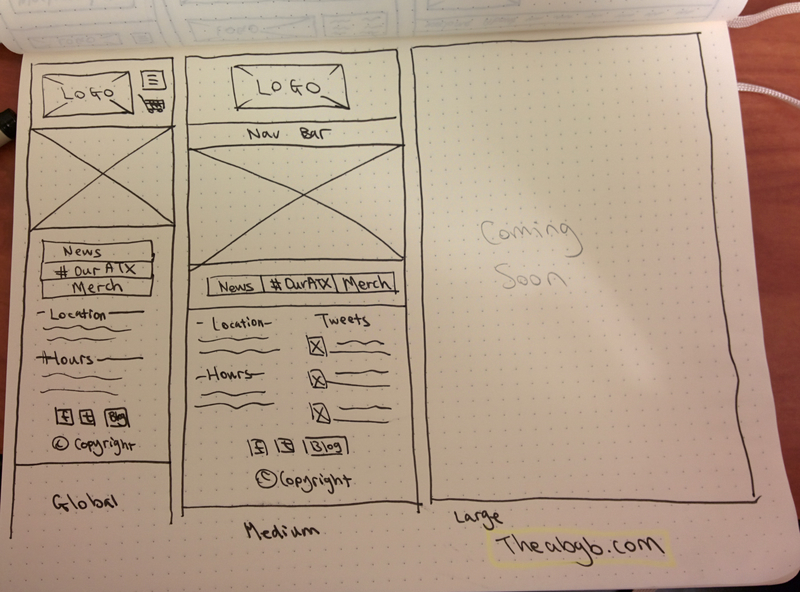 LOGO
News
#OurATX
Merch
Location
Hours
f t Blog
© Copyright
Global
LOGO
Nav Bar
News #OurATX Merch
Location
Hours
Tweets
f t Blog
© Copyright
Medium
Coming
Soon
Large
Theabgb.com